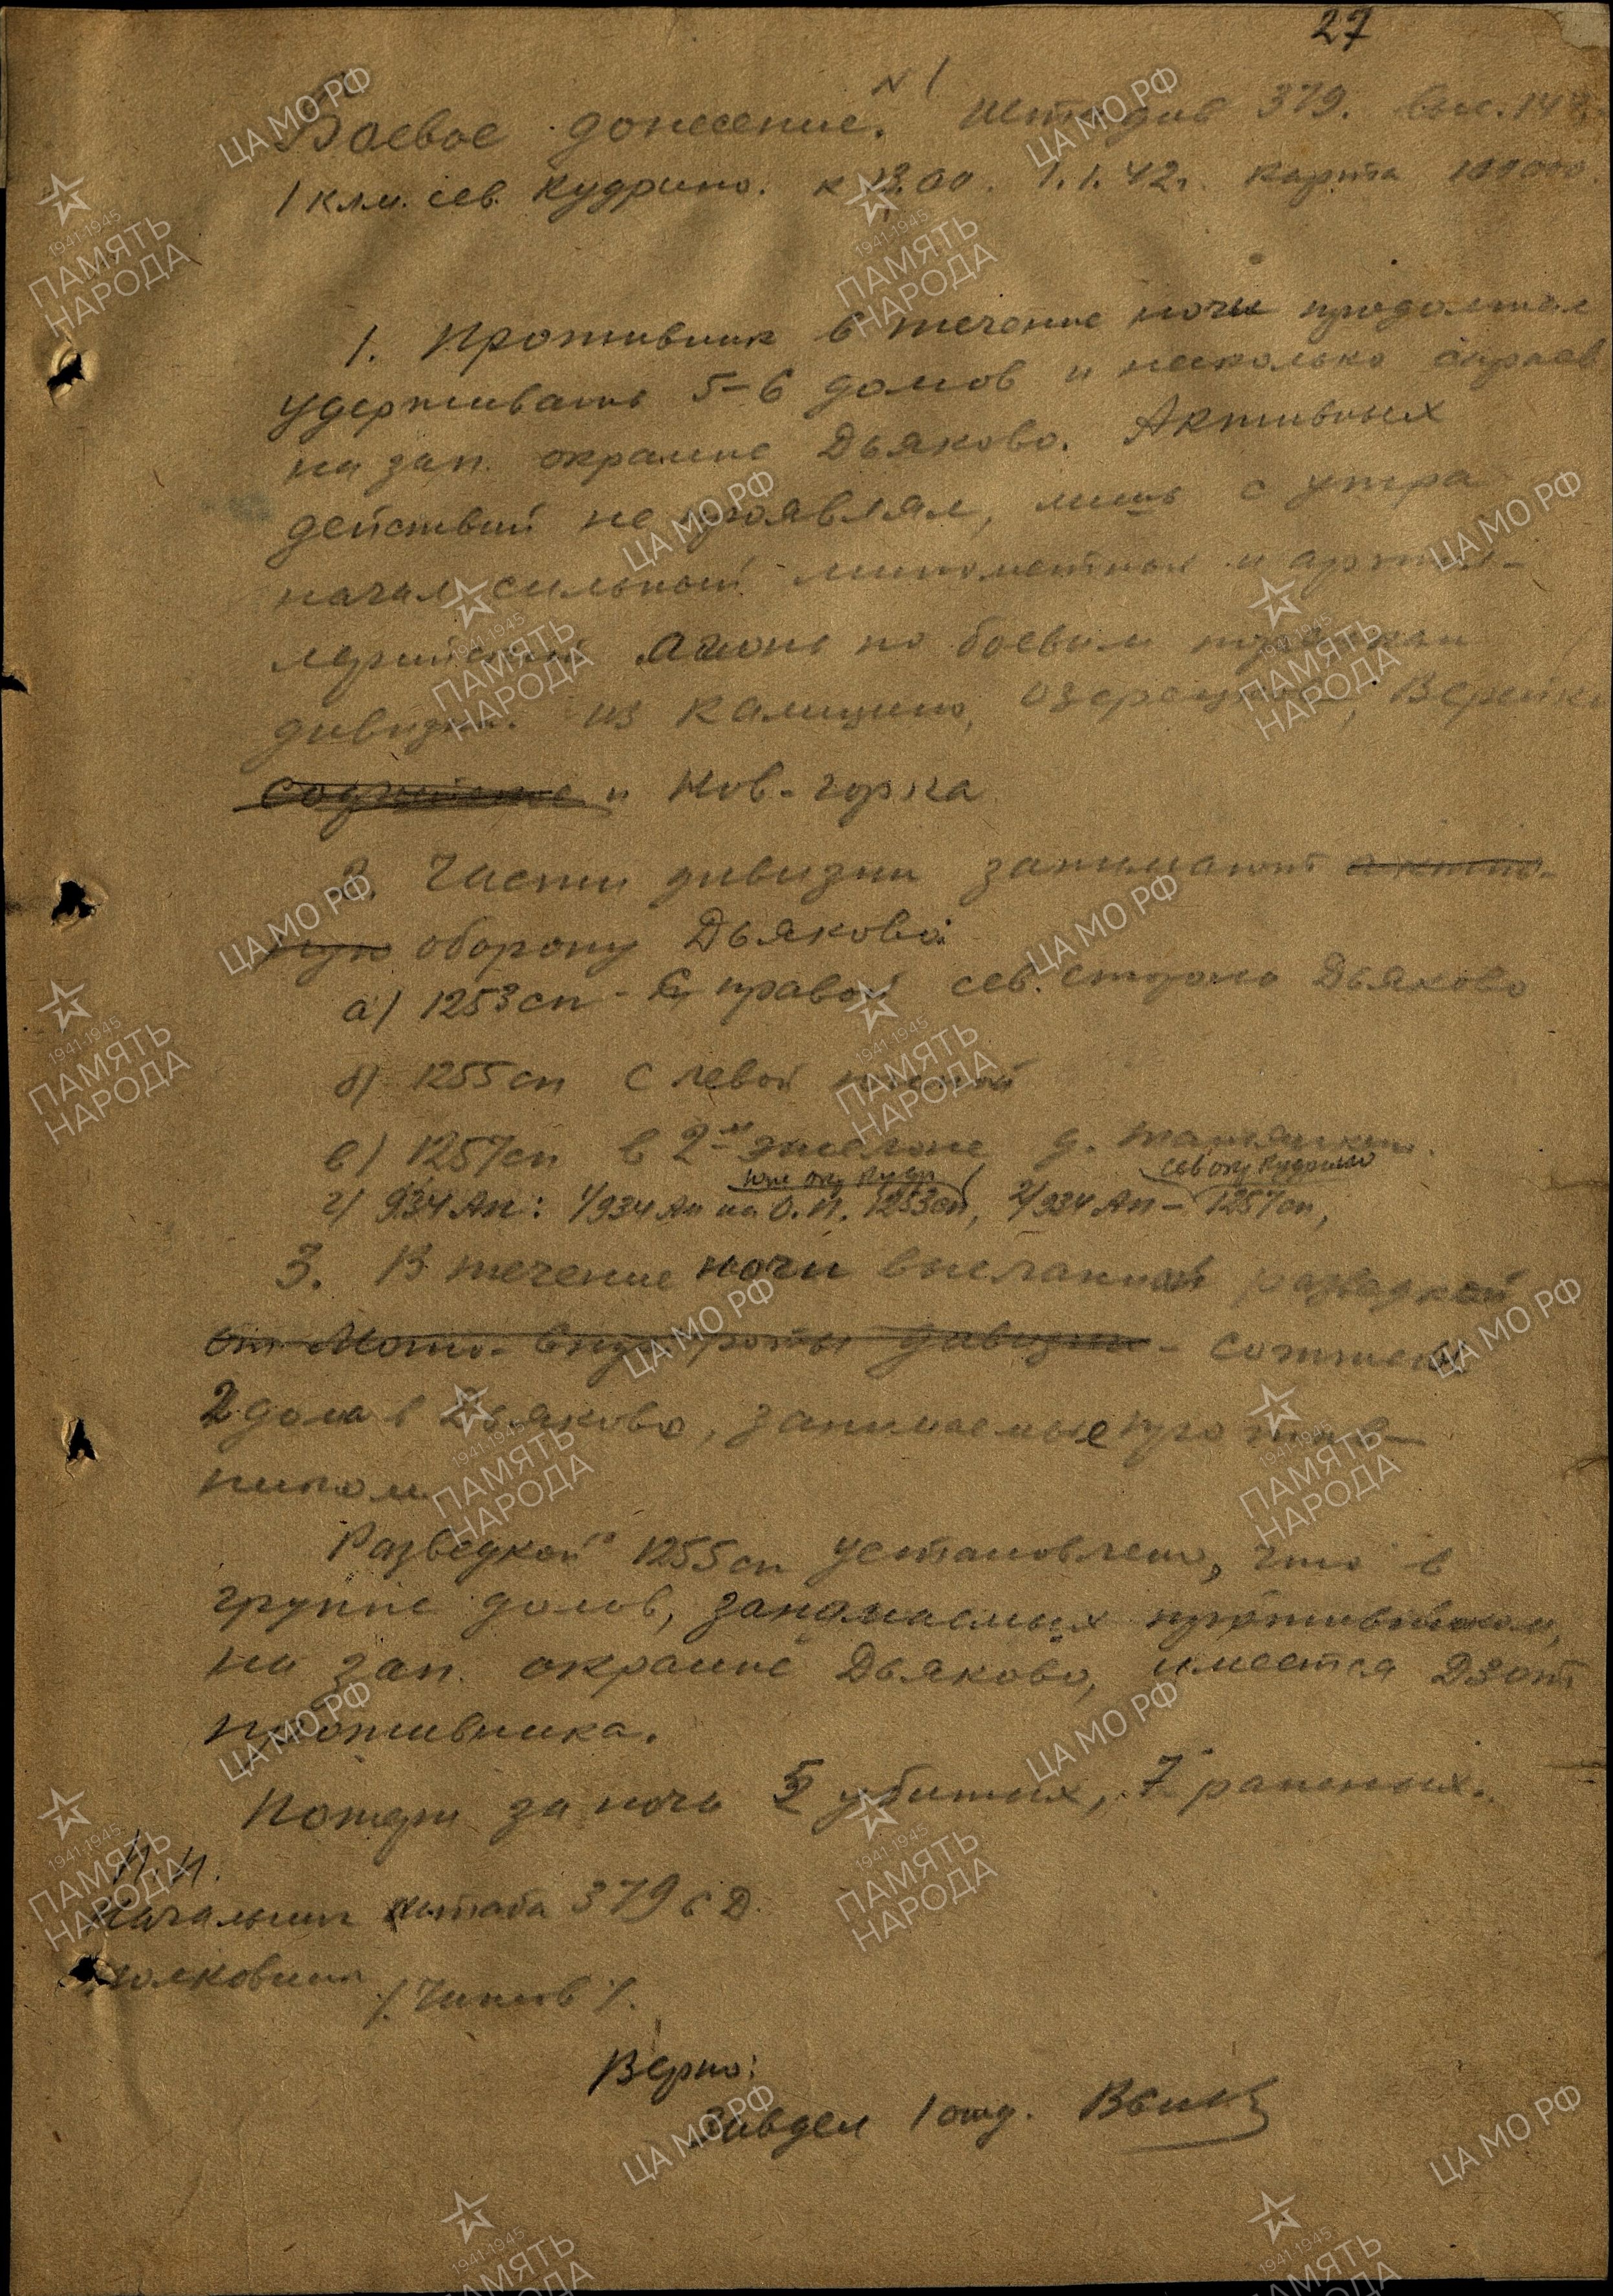 27
Боевое донесение. N 1 Штадив 379. выс. 147
1 клм. сев. Кудрино. к 12.00. 1.1.42г. Карта 100000.
1. Противник в течение ночи продолжал
удерживать 5-6 домов и несколько сараев
на зап. окраине Дьяково. Активных
действий не проявлял, лишь с утра
начал сильный минометный и артил-
лерийский огонь по боевым порядкам
дивизии из Калицино, Озерецкое, Верейки
и Нов-горка
2. Части дивизии занимают активо-
ную оборону Дьяково:
а) 1253 сп - С правой сев. сторона Дьяково
б) 1255 сп с левой
в) 1257 сп в 2-м эшелоне д.
юж окр Кудр сев окр Кудрино
г) 934 Ап: 1/934 Ап на О.П. 1253 сп, 2/934 Ап - 1257 сп,
3. В течение ночи высланной разведкой
от Мото- роты дивизии - сожжены
2 дома в Дьяково, занимаемые против-
ником
Разведкой 1255 сп установлено, что в
группе домов, занимаемых противником,
на зап. окраине Дьяково, имеется Дзот
противника.
Потери за ночь 5 убитых, 7 раненых.
Н.П.
Начальник штаба 379 СД.
Полковник
/Чипов/.
Верно:
Завдел 1 отд.
ЦА МО РФ
1941-1945
ПАМЯТЬ
НАРОДА